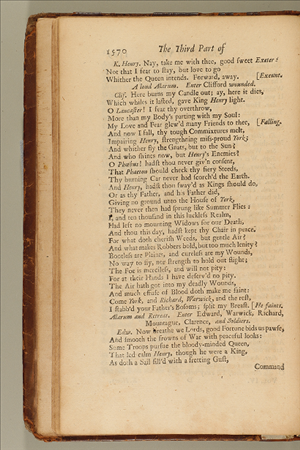 1570 The Third Part of
K. Henry. Nay, take me with thee, good sweet Exeter:
Not that I fear to stay, but love to go
Whither the Queen intends. Forward, away. [Exeunt.
A loud Alarum. Enter Clifford wounded.
Clif. Here burns my Candle out; ay, here it dies,
Which whiles it lasted, gave King Henry light.
O Lancaster! I fear thy overthrow,
More than my Body's parting with my Soul:
My Love and Fear glew'd many Friends to thee, [Falling.
And now I fall, thy tough Commixtures melt,
Impairing Henry, strengthening mis-proud York;
And whither fly the Gnats, but to the Sun?
And who shines now, but Henry's Enemies?
O Phœbus! hadst thou never giv'n consent,
That Phaeton should check thy fiery Steeds,
Thy burning Car never had scorch'd the Earth.
And Henry, hadst thou sway'd as Kings should do,
Or as thy Father, and his Father did,
Giving no ground unto the House of York,
They never then had sprung like Summer Flies:
I, and ten thousand in this luckless Realm,
Had left no mourning Widows for our Death,
And thou this day, hadst kept thy Chair in peace.
For what doth cherish Weeds, but gentle Air?
And what makes Robbers bold, but too much lenity?
Bootless are Plaints, and cureless are my Wounds,
No way to fly, nor strength to hold out flight;
The Foe is merciless, and will not pity:
For at their Hands I have deserv'd no pity.
The Air hath got into my deadly Wounds,
And much effuse of Blood doth make me faint:
Come York, and Richard, Warwick, and the rest,
I stabb'd your Father's Bosoms; split my Breast. [He faints.
Alarum and Retreat. Enter Edward, Warwick, Richard,
Mountague, Clarence, and Soldiers.
Edw. Now breathe we Lords, good Fortune bids us pawse,
And smooth the frowns of War with peaceful looks:
Some Troops pursue the bloody-minded Queen,
That led calm Henry, though he were a King,
As doth a Sail fill'd with a fretting Gust,
Command